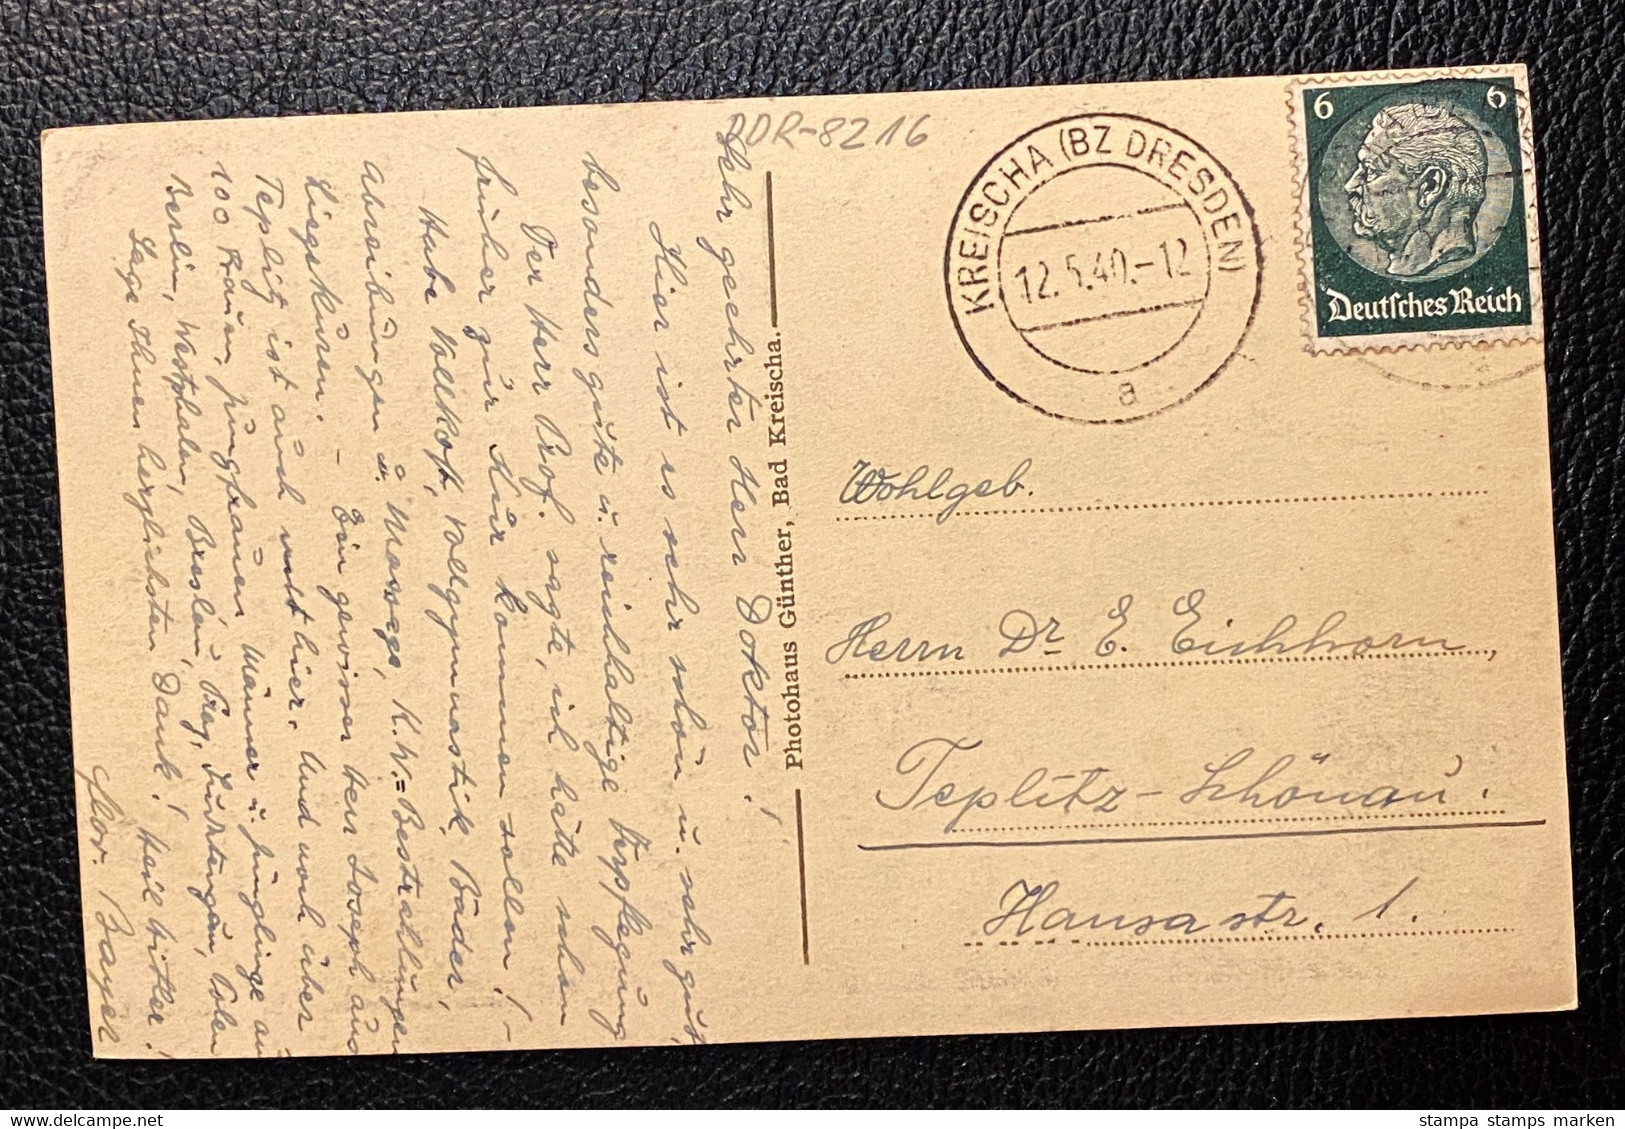 DDR-8216
KREISCHA (BZ DRESDEN)
12.5.40.-12
a
6 6
Deutsches Reich
Sehr geehrter Herr Doktor!
Hier ist es sehr schön u. sehr gut,
besonders gute u. reichhaltige Verpflegung
Der Herr Prof. sagte, ich hätte schon
früher zur Kur kommen sollen! -
Habe Vollkost, Vollgymnastik, Bäder,
Abreibungen u. Massage, K.W.=Bestrahlungen
Liegekuren. - Ein gewisser Herr Joseph aus
Teplitz ist auch mit hier. Und noch über
100 Frauen, Jungfrauen, Männer u. Jünglinge aus
Berlin, Westphalen, Breslau, Prag, Polen
Sage Ihnen herzlichsten Dank! Heil Hitler!
Bayer
Photohaus Günther, Bad Kreischa.
Wohlgeb.
Herrn Dr. E. Eichhorn,
Teplitz-Schönau.
Hansastr. 1.
stampa stamps marken